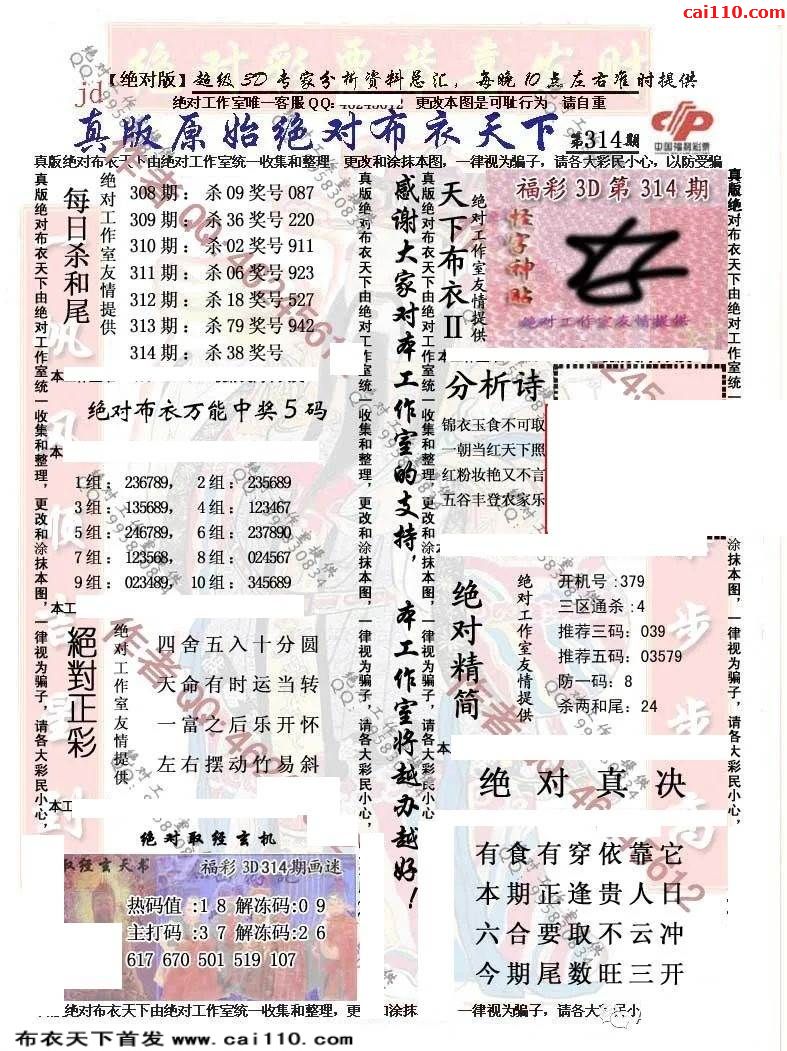 cai110.com
【绝对版】超级3D专家分析资料总汇，每晚10点左右准时提供
jd
绝对工作室唯一客服QQ：46245612 更改本图是可耻行为 请自重
真版原始绝对布衣天下 第314期
中国福利彩票
真版绝对布衣天下由绝对工作室统一收集和整理，更改和涂抹本图，一律视为骗子，请各大彩民小心，以防受骗
每日杀和尾
绝对工作室友情提供
308期：杀09奖号087
309期：杀36奖号220
310期：杀02奖号911
311期：杀06奖号923
312期：杀18奖号527
313期：杀79奖号942
314期：杀38奖号
绝对布衣万能中奖5码
1组：236789， 2组：235689
3组：135689， 4组：123467
5组：246789， 6组：237890
7组：123568， 8组：024567
9组：023489， 10组：345689
絕對正彩
绝对工作室友情提供
四舍五入十分圆
天命有时运当转
一富之后乐开怀
左右摆动竹易斜
绝对取经玄机
取经玄天书 福彩3D314期画迷
热码值:18解冻码:09
主打码:37解冻码:26
617 670 501 519 107
真版绝对布衣天下由绝对工作室统一收集和整理，更改和涂抹本图，一律视为骗子，请各大彩民小心，
感谢大家对本工作室的支持，本工作室将越办越好！
天下布衣II
绝对工作室友情提供
福彩3D第314期
怪字神贴
绝对工作室友情提供
分析诗
锦衣玉食不可取
一朝当红天下照
红粉妆艳又不言
五谷丰登农家乐
绝对精简
绝对工作室友情提供
开机号:379
三区通杀:4
推荐三码:039
推荐五码:03579
防一码:8
杀两和尾:24
绝对真决
有食有穿依靠它
本期正逢贵人日
六合要取不云冲
今期尾数旺三开
绝对布衣天下由绝对工作室统一收集和整理，更 和涂抹 一律视为骗子，请各大彩民小
布衣天下首发 www.cai110.com